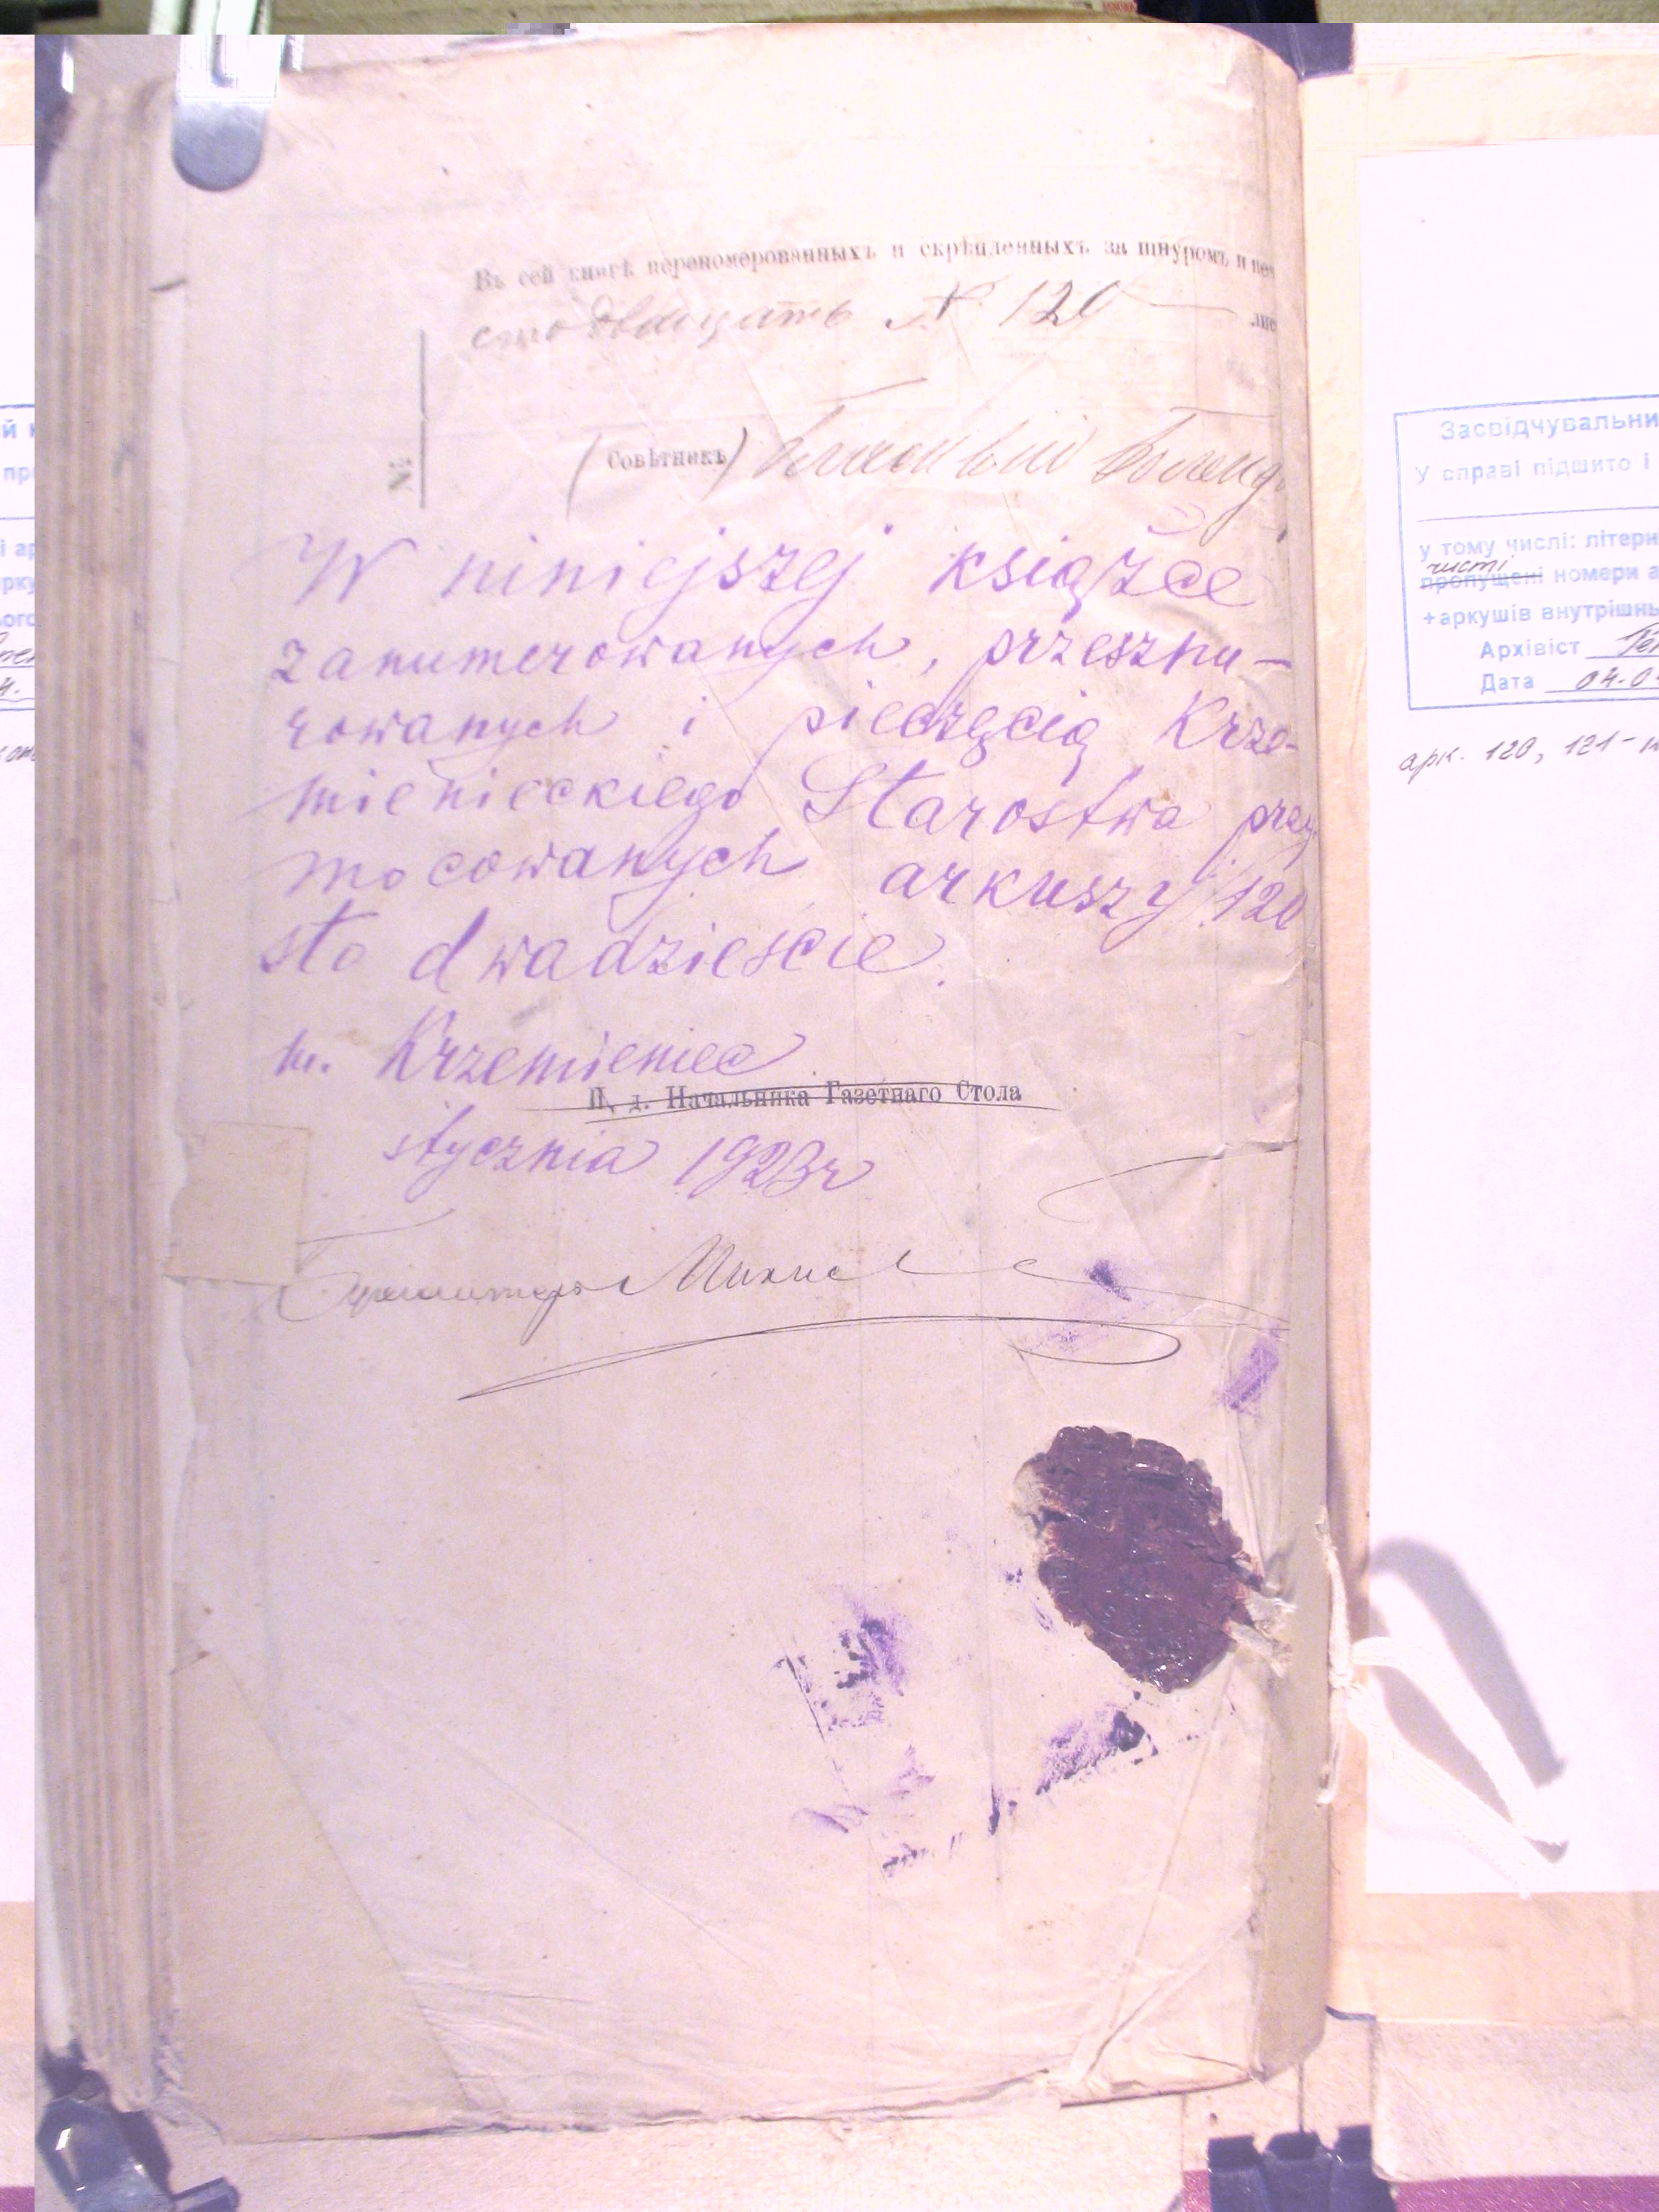 Въ сей книгѣ перономерованныхъ и скрѣпленныхъ за шнуромъ и печ
стодвадцать № 120 лис
№
(Совѣтникъ)
W niniejszej książce
zanumerowanych, przesznu-
rowanych i pieczęcią Krze-
mienieckiego Starostwa przy
mocowanych arkuszy 120
sto dwadzieście.
m. Krzemieniec
И. д. Начальника Газетнаго Стола
stycznia 1923r
Бухгалтеръ
Засвідчувальни
У справі підшито і
у тому числі: літерн
чисті
пропущені номери а
+аркушів внутрішнь
Архівіст
Дата 04.0
арк. 120, 121-